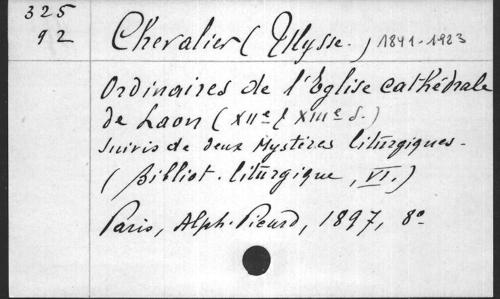 325
92
Chevalier (Ulysse.) 1841-1923
Ordinaires de l'Eglise cathédrale
de Laon (XIIe & XIIIe S.)
suivis de deux Mystères liturgiques.
(Bibliot. liturgique, VI.)
Paris, Alph. Picard, 1897, 8o